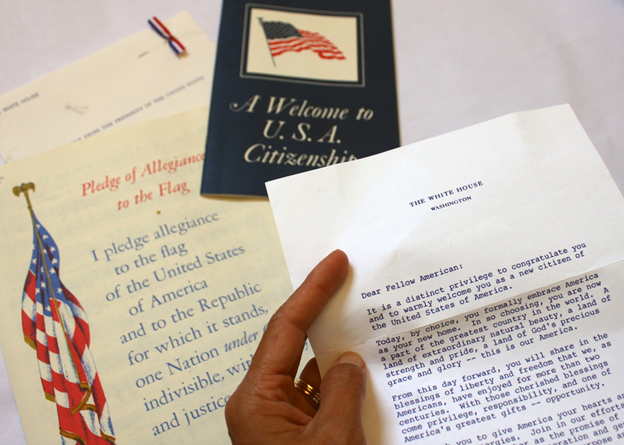 WHITE HOUSE
FROM THE PRESIDENT OF THE UNITED STATES
A Welcome to
U. S. A.
Citizenship
Pledge of Allegiance
to the Flag
I pledge allegiance
to the flag
of the United States
of America
and to the Republic
for which it stands,
one Nation under
indivisible, with
and justice
THE WHITE HOUSE
WASHINGTON
Dear Fellow American:
It is a distinct privilege to congratulate you
and to warmly welcome you as a new citizen of
the United States of America.
Today, by choice, you formally embrace America
as your new home. In so choosing, you are now
a part of the greatest country in the world. A
land of extraordinary natural beauty, a land of
strength and pride, a land of God's precious
grace and glory -- this is our America.
From this day forward, you will share in the
blessings of liberty and freedom that we, as
Americans, have enjoyed for more than two
centuries. With those cherished blessings
come privilege, responsibility, and one of
America's greatest gifts -- opportunity.
you give America your hearts
Join in our efforts
the promise of